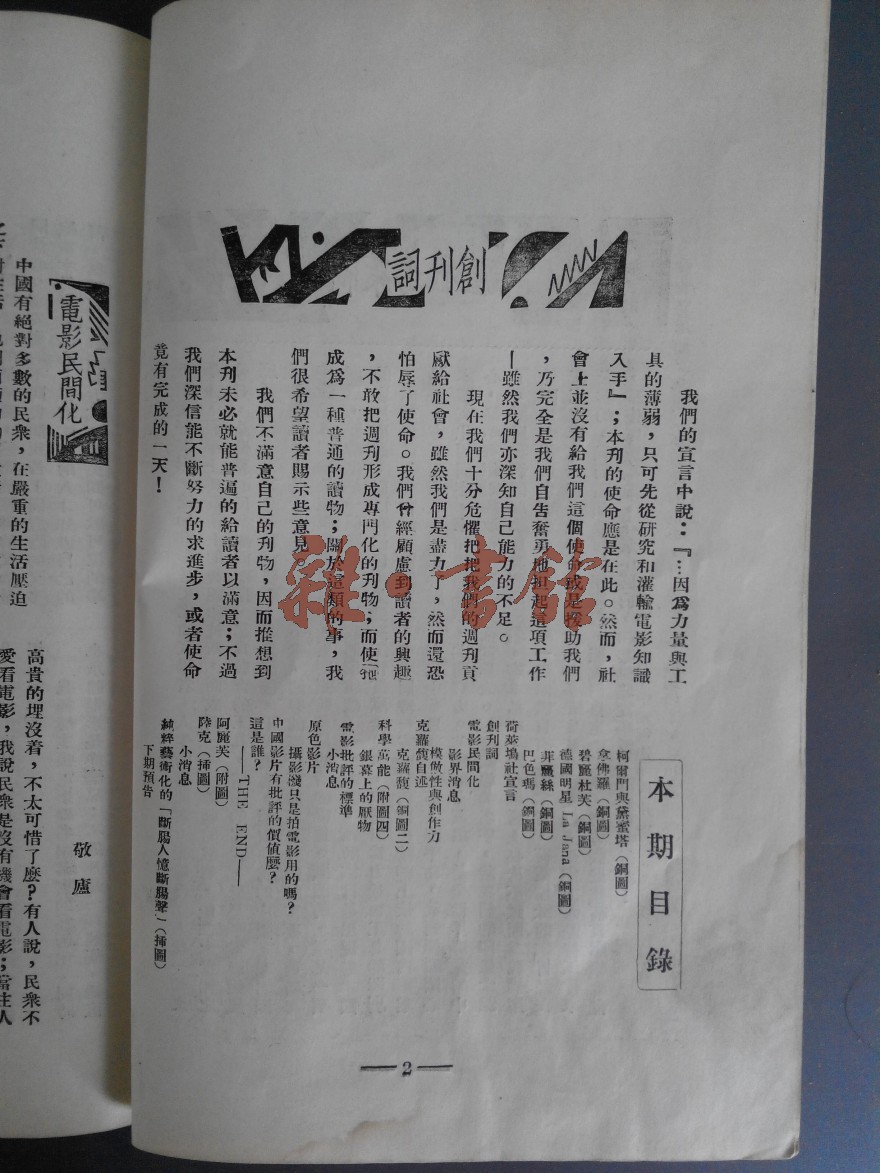 創刊詞
我們的宣言中說：『…因爲力量與工
具的薄弱，只可先從研究和灌輸電影知識
入手』；本刊的使命應是在此。然而，社
會上並沒有給我們這個使命或是援助我們
，乃完全是我們自告奮勇地担起這項工作
—雖然我們亦深知自己能力的不足。
現在我們十分危懼把把我們的週刊貢
獻給社會，雖然我們是盡力了，然而還恐
怕辱了使命。我們曾經顧慮到讀者的興趣
，不敢把週刊形成專門化的刋物；而使牠
成爲一種普通的讀物；關於這類的事，我
們很希望讀者賜示些意見。
我們不滿意自己的刋物，因而推想到
本刊未必就能普遍的給讀者以滿意；不過
我們深信能不斷努力的求進步，或者使命
竟有完成的一天！
本期目錄
柯爾門與黛蜜塔（銅圖）
拿佛羅（銅圖）
碧麗杜芙（銅圖）
德國明星 La Jana（銅圖）
菲麗絲（銅圖）
巴色瑪（銅圖）
荷萊塢社宣言
創刊詞
電影民間化
影界消息
模倣性與創作力
克羅馥自述
克羅馥（銅圖二）
科學萬能（附圖四）
銀幕上的厭物
電影批評的標準
小消息
原色影片
攝影機只是拍電影用的嗎？
中國影片有批評的價値麽？
這是誰？
——THE END——
阿麗芙（附圖）
陸克（揷圖）
小消息
純粹藝術化的「斷腸人憶斷腸聲」（揷圖）
下期預告
—2—
電影民間化
敬廬
中國有絕對多數的民衆，在嚴重的生活壓迫
高貴的埋沒着，不太可惜了麽？有人說，民衆不
愛看電影，我說民衆是沒有機會看電影；當往人
雜·書館